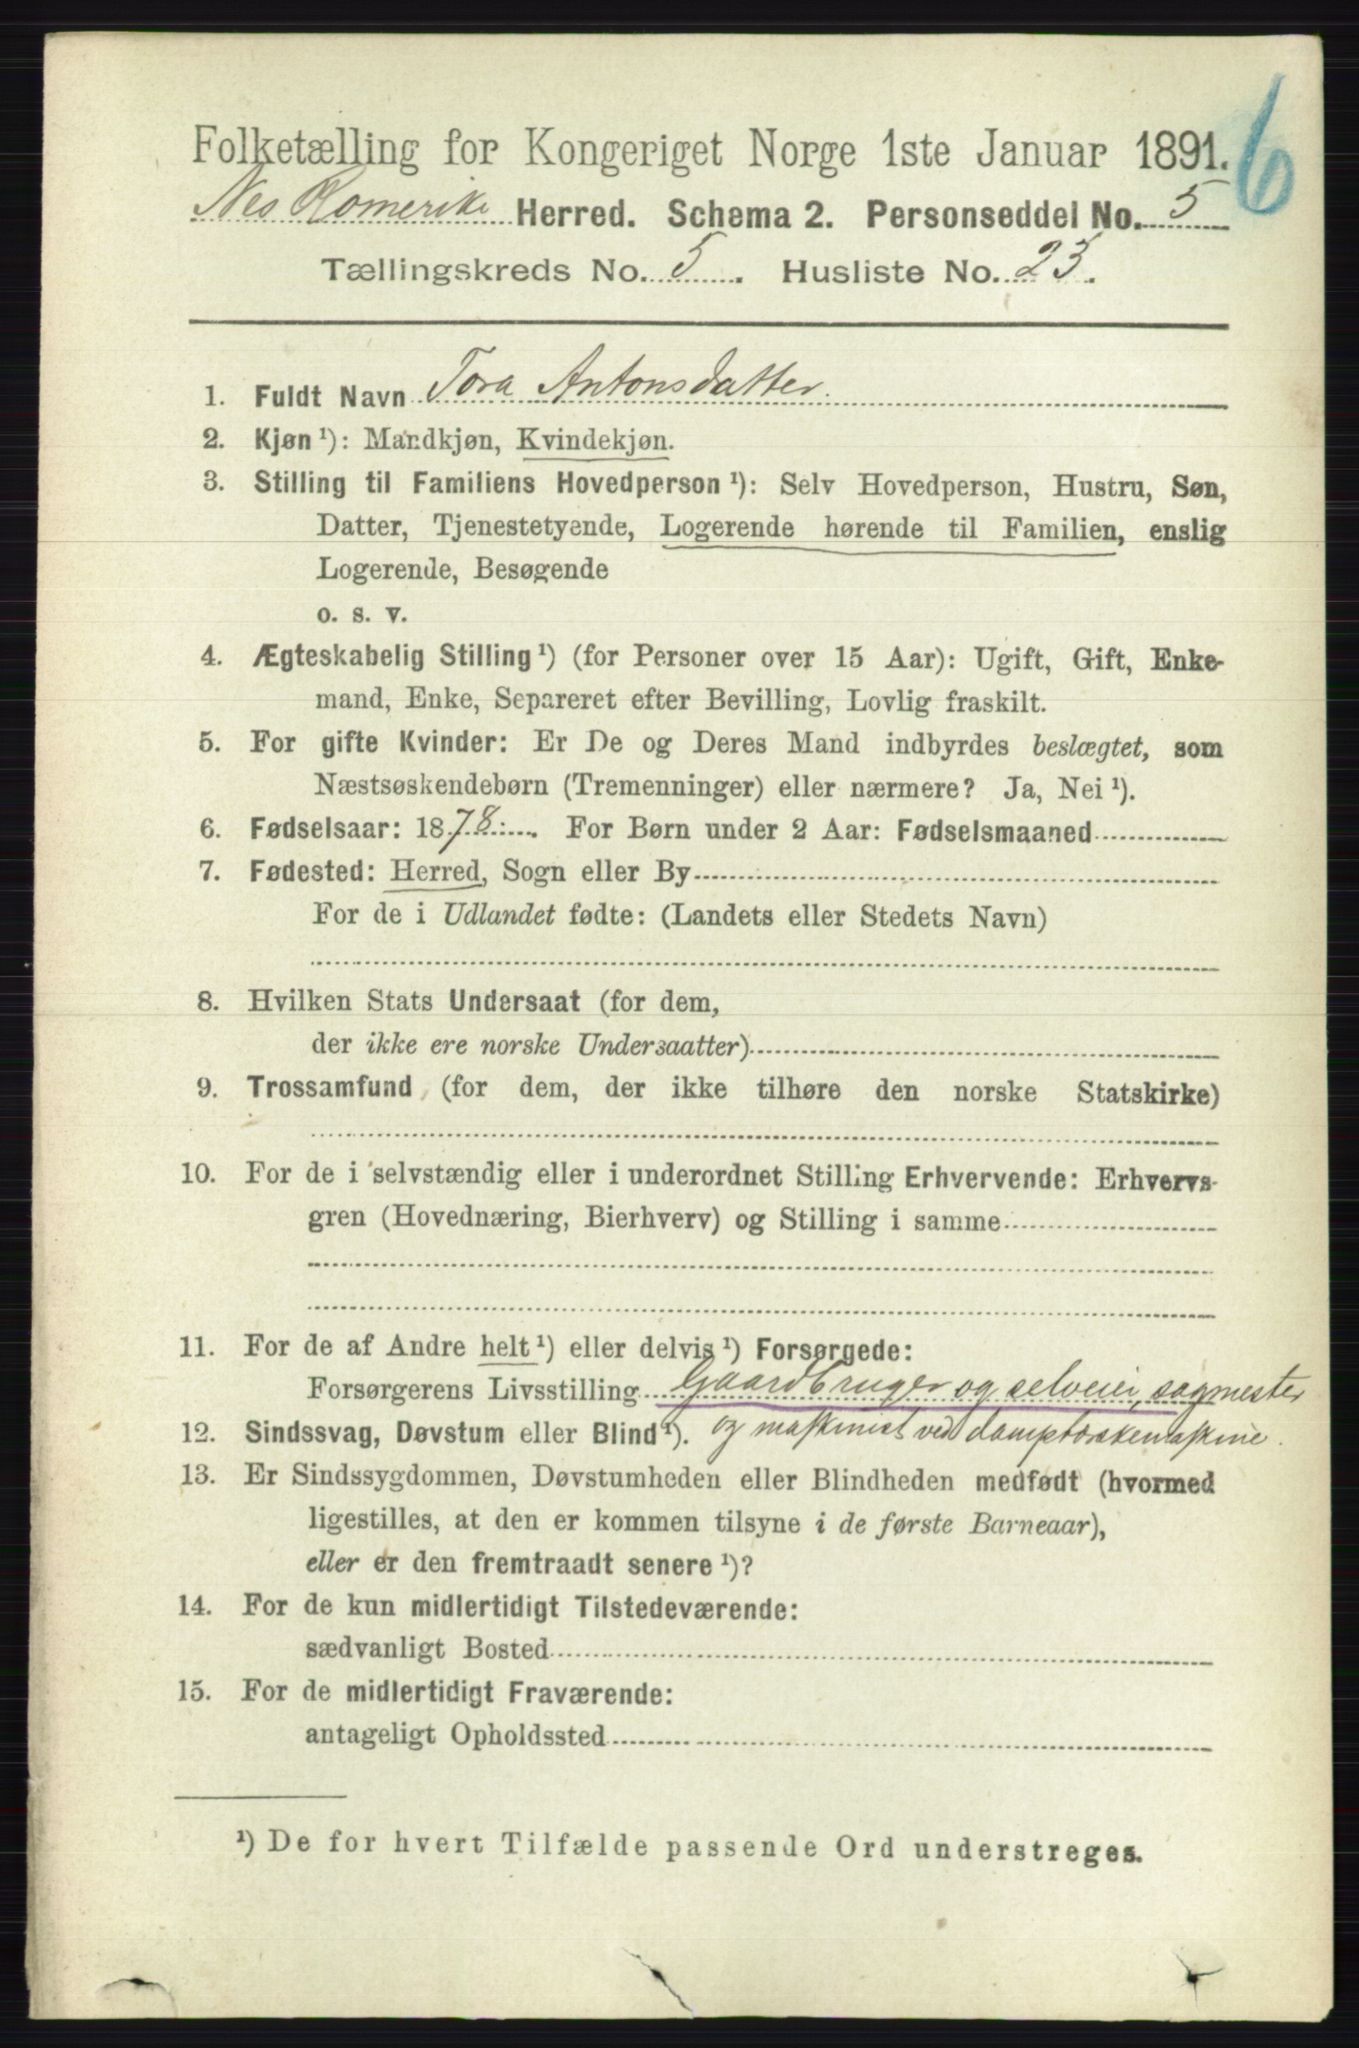 6
Folketælling for Kongeriget Norge 1ste Januar 1891.
Nes Romerike Herred. Schema 2. Personseddel No. 5
Tællingskreds No. 5. Husliste No. 23.
1. Fuldt Navn Tora Antonsdatter.
2. Kjøn ¹): Mandkjøn, Kvindekjøn.
3. Stilling til Familiens Hovedperson ¹): Selv Hovedperson, Hustru, Søn,
Datter, Tjenestetyende, Logerende hørende til Familien, enslig
Logerende, Besøgende
o. s. v.
4. Ægteskabelig Stilling ¹) (for Personer over 15 Aar): Ugift, Gift, Enke-
mand, Enke, Separeret efter Bevilling, Lovlig fraskilt.
5. For gifte Kvinder: Er De og Deres Mand indbyrdes beslægtet, som
Næstsøskendebørn (Tremenninger) eller nærmere? Ja, Nei ¹).
6. Fødselsaar: 1878. For Børn under 2 Aar: Fødselsmaaned
7. Fødested: Herred, Sogn eller By
For de i Udlandet fødte: (Landets eller Stedets Navn)
8. Hvilken Stats Undersaat (for dem,
der ikke ere norske Undersaatter)
9. Trossamfund (for dem, der ikke tilhøre den norske Statskirke)
10. For de i selvstændig eller i underordnet Stilling Erhvervende: Erhvervs-
gren (Hovednæring, Bierhverv) og Stilling i samme
11. For de af Andre helt ¹) eller delvis ¹) Forsørgede:
Forsørgerens Livsstilling Gaardbruger og selveier, sagmester
12. Sindssvag, Døvstum eller Blind ¹). og maskinist ved damptærskemaskine.
13. Er Sindssygdommen, Døvstumheden eller Blindheden medfødt (hvormed
ligestilles, at den er kommen tilsyne i de første Barneaar),
eller er den fremtraadt senere ¹)?
14. For de kun midlertidigt Tilstedeværende:
sædvanligt Bosted
15. For de midlertidigt Fraværende:
antageligt Opholdssted
¹) De for hvert Tilfælde passende Ord understreges.